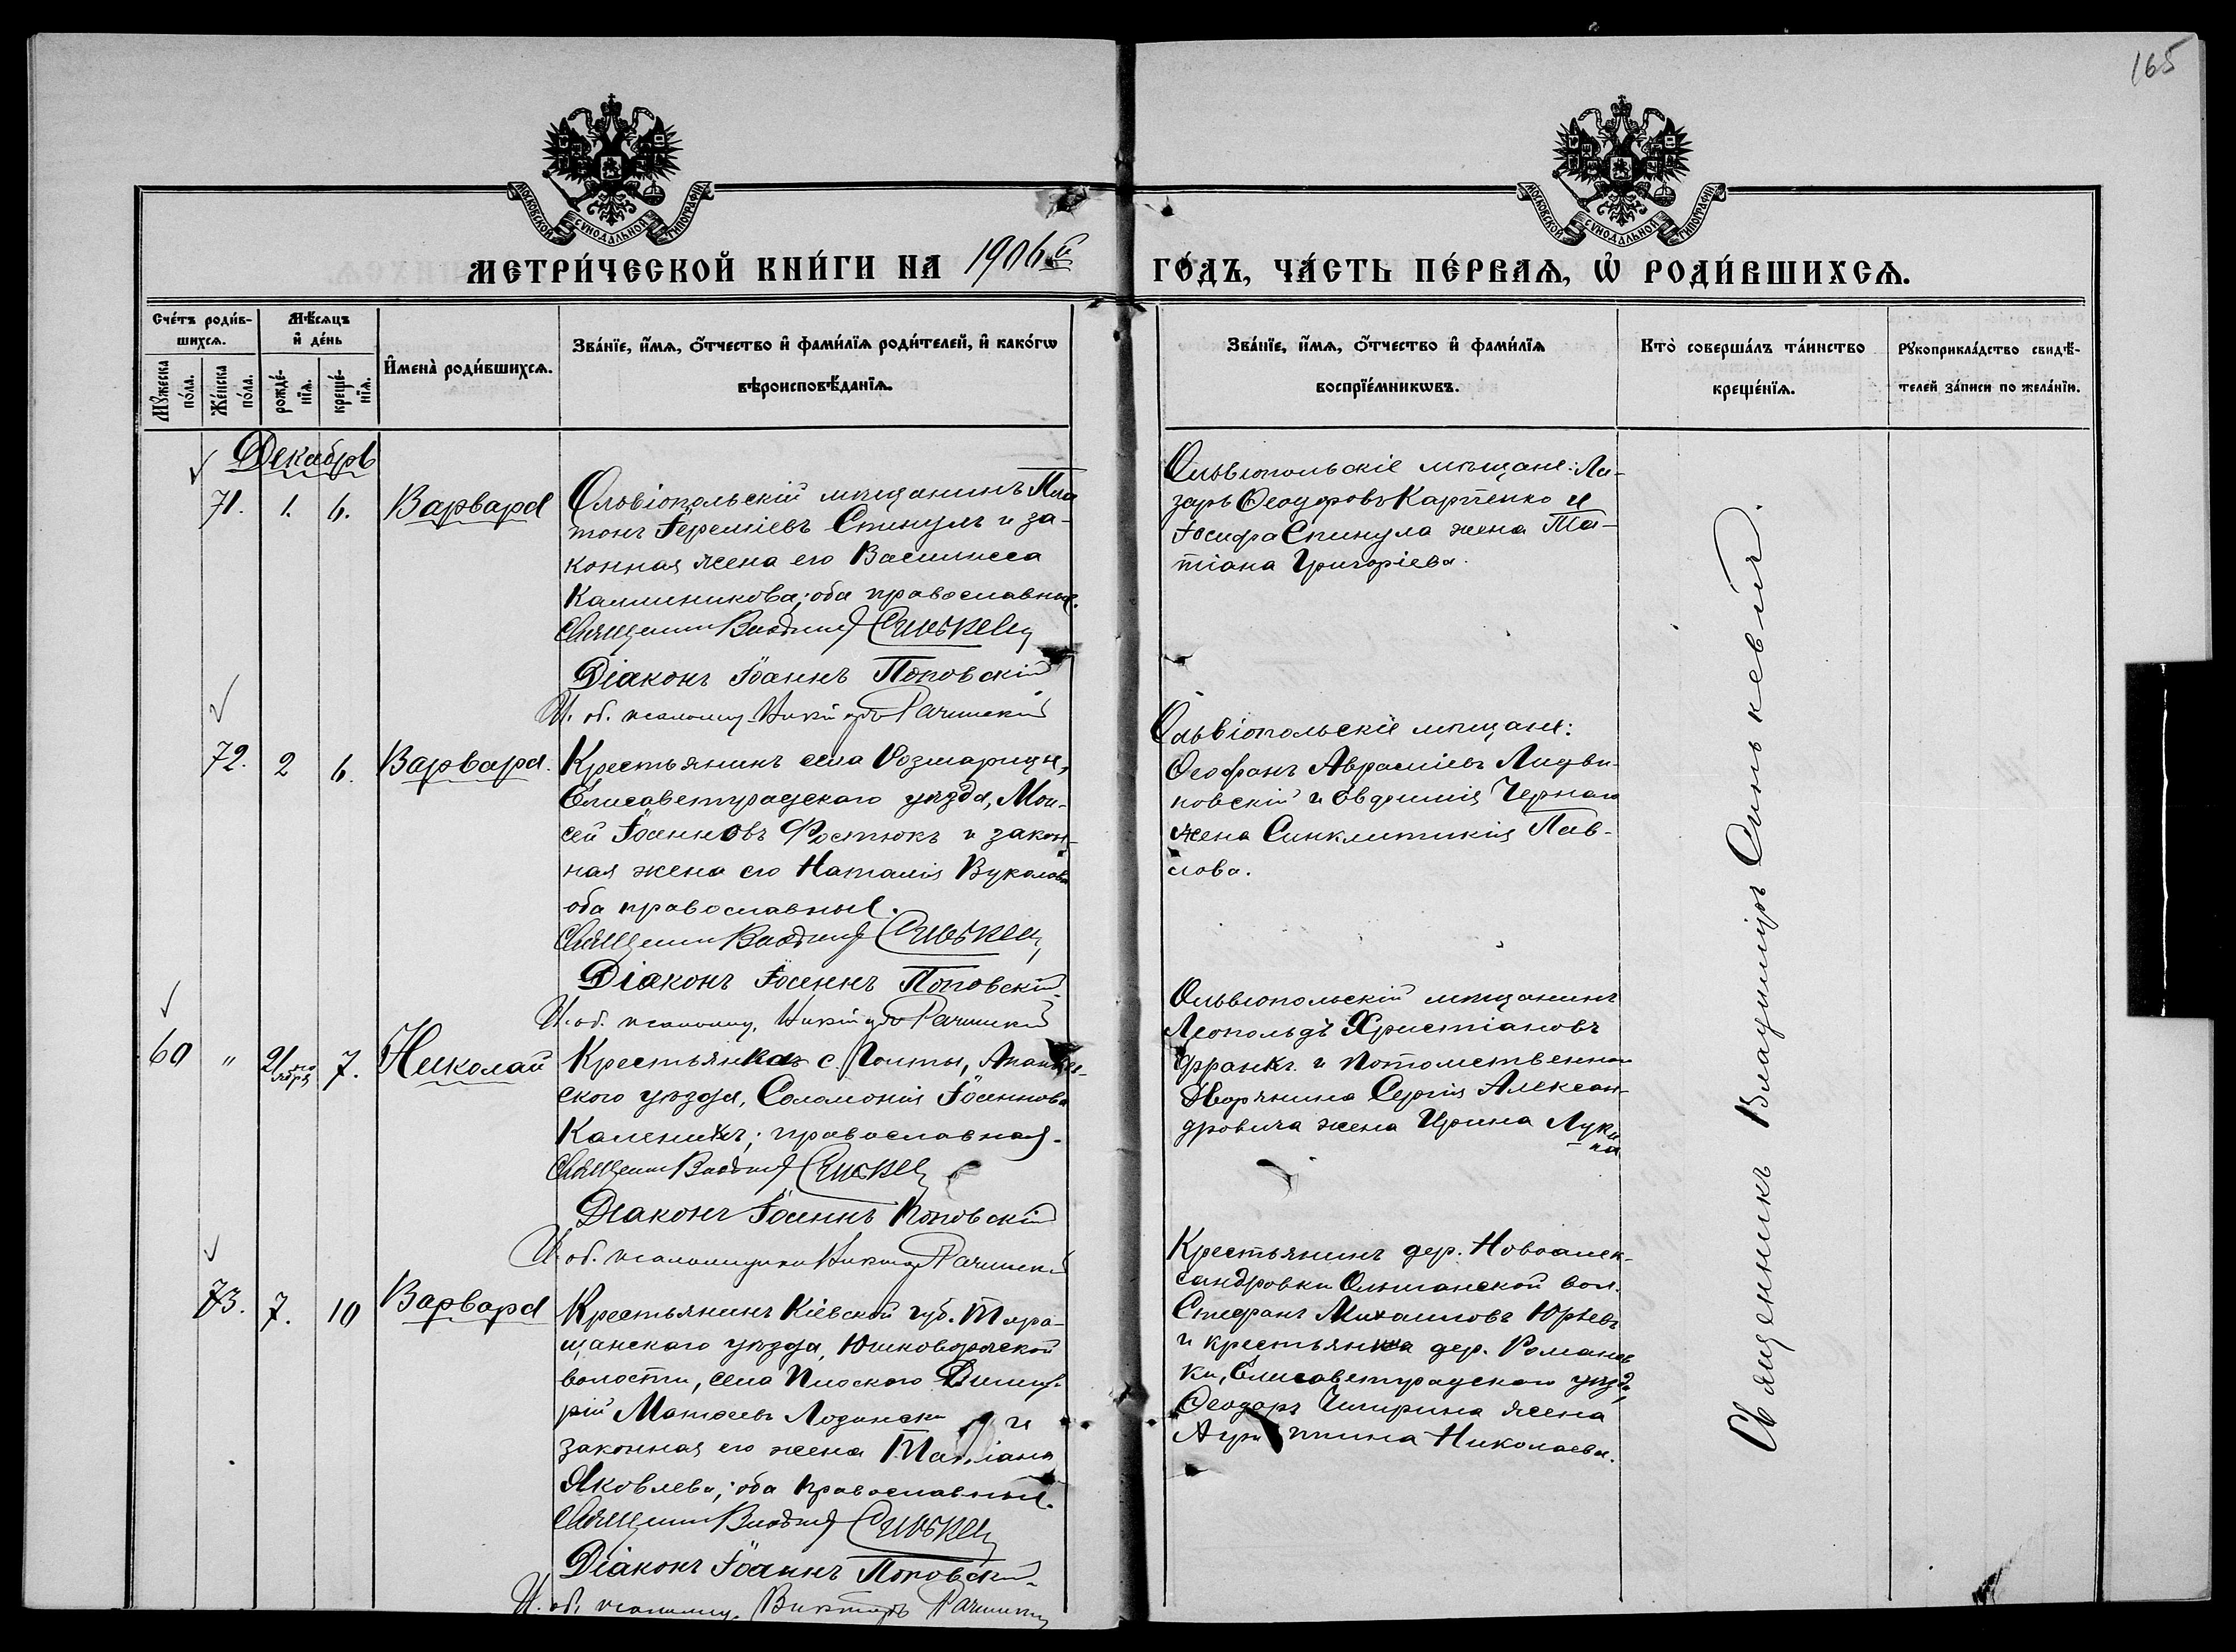 165
МОСКОВСКОЙ СѴНОДАЛЬНОЙ ТИПОГРАФІИ
МОСКОВСКОЙ СѴНОДАЛЬНОЙ ТИПОГРАФІИ
МЕТРИ́ЧЕСКОЙ КНИ́ГИ НА 1906й
ГО́ДЪ, ЧА́СТЬ ПЕ́РВАѦ, Ѡ҆ РОДИ́ВШИХСѦ.
Сче́тъ роди́в-
шихсѧ.
Мꙋ́жеска по́ла.
Же́нска по́ла.
Мѣ́сѧцъ
и҆ де́нь
рожде́-
нїѧ.
креще́-
нїѧ.
И҆мена̀ роди́вшихсѧ.
Зва́нїе, и҆́мѧ, ѻ҆́тчество и҆ фами́лїѧ роди́телей, и҆ како́гѡ
вѣроисповѣ́данїѧ.
Зва́нїе, и҆́мѧ, ѻ҆́тчество и҆ фами́лїѧ
воспрїе́мникѡвъ.
Кто̀ соверша́лъ та́инство
креще́нїѧ.
Рꙋкоприкла́дство свидѣ́-
телей за́писи по жела́нїю.
Декабрь
71. 1. 6. Варвара
Ольвіопольскій мѣщанинъ Пла
тонъ Іереміевъ Спинулъ и за-
конная жена его Василисса
Каллиникова; оба православные.
Священникъ Владимиръ Синькевич
Діаконъ Іоаннъ Поповскій
И. об. псаломщ. Рачинскій
Ольвіопольскіе мѣщане: Ла-
зарь Ѳеодоровъ Карпенко и
Іосифа Спинула жена Та-
тіана Григоріева.
72. 2 6. Варвара.
Крестьянинъ села Розмарицы,
Елисаветградскаго уѣзда, Мои-
сей Іоанновъ Фостюкъ и закон-
ная жена его Наталія Вуколова
оба православные.
Священникъ Владимиръ Синькевич
Діаконъ Іоаннъ Поповскій.
И. об. псаломщ. Рачинскій
Ольвіопольскіе мѣщане:
Ѳеофанъ Авраміевъ Лидви-
новскій и Евфимія Чернаго
жена Синклитикія Пав-
лова.
60 " 21 но
ября 7. Николай
Крестьянка с. Полты, Ананьев-
скаго уѣзда, Соломонія Іоаннова
Каленикъ; православная.
Священникъ Владимиръ Синькевич
Діаконъ Іоаннъ Поповскій
И. об. псаломщика Рачинскій
Ольвіопольскій мѣщанинъ
Леопольдъ Христіановъ
Франкъ и потомственнаго
Дворянина Сергія Алексан-
дровича жена Ирина Луки
на
73. 7. 10 Варвара
Крестьянинъ Кіевской губ. Тара-
щанскаго уѣзда, Юшковорожской
волости, села Плоскаго Димит-
рій Матѳеевъ Лозинскій и
законная его жена Татіана
Яковлева; оба православные.
Священникъ Владимиръ Синькевич
Діаконъ Іоаннъ Поповскій.
И. об. псаломщ. Викторъ Рачинскій
Крестьянинъ дер. Новоалек-
сандровки Ольшанской вол.
Стефанъ Михаиловъ Юрьевъ
и крестьянина дер. Романов
ки, Елисаветградскаго уѣзда,
Ѳеодора Чигрина жена
Агриппина Николаева.
Священникъ Владимиръ Синькевич.